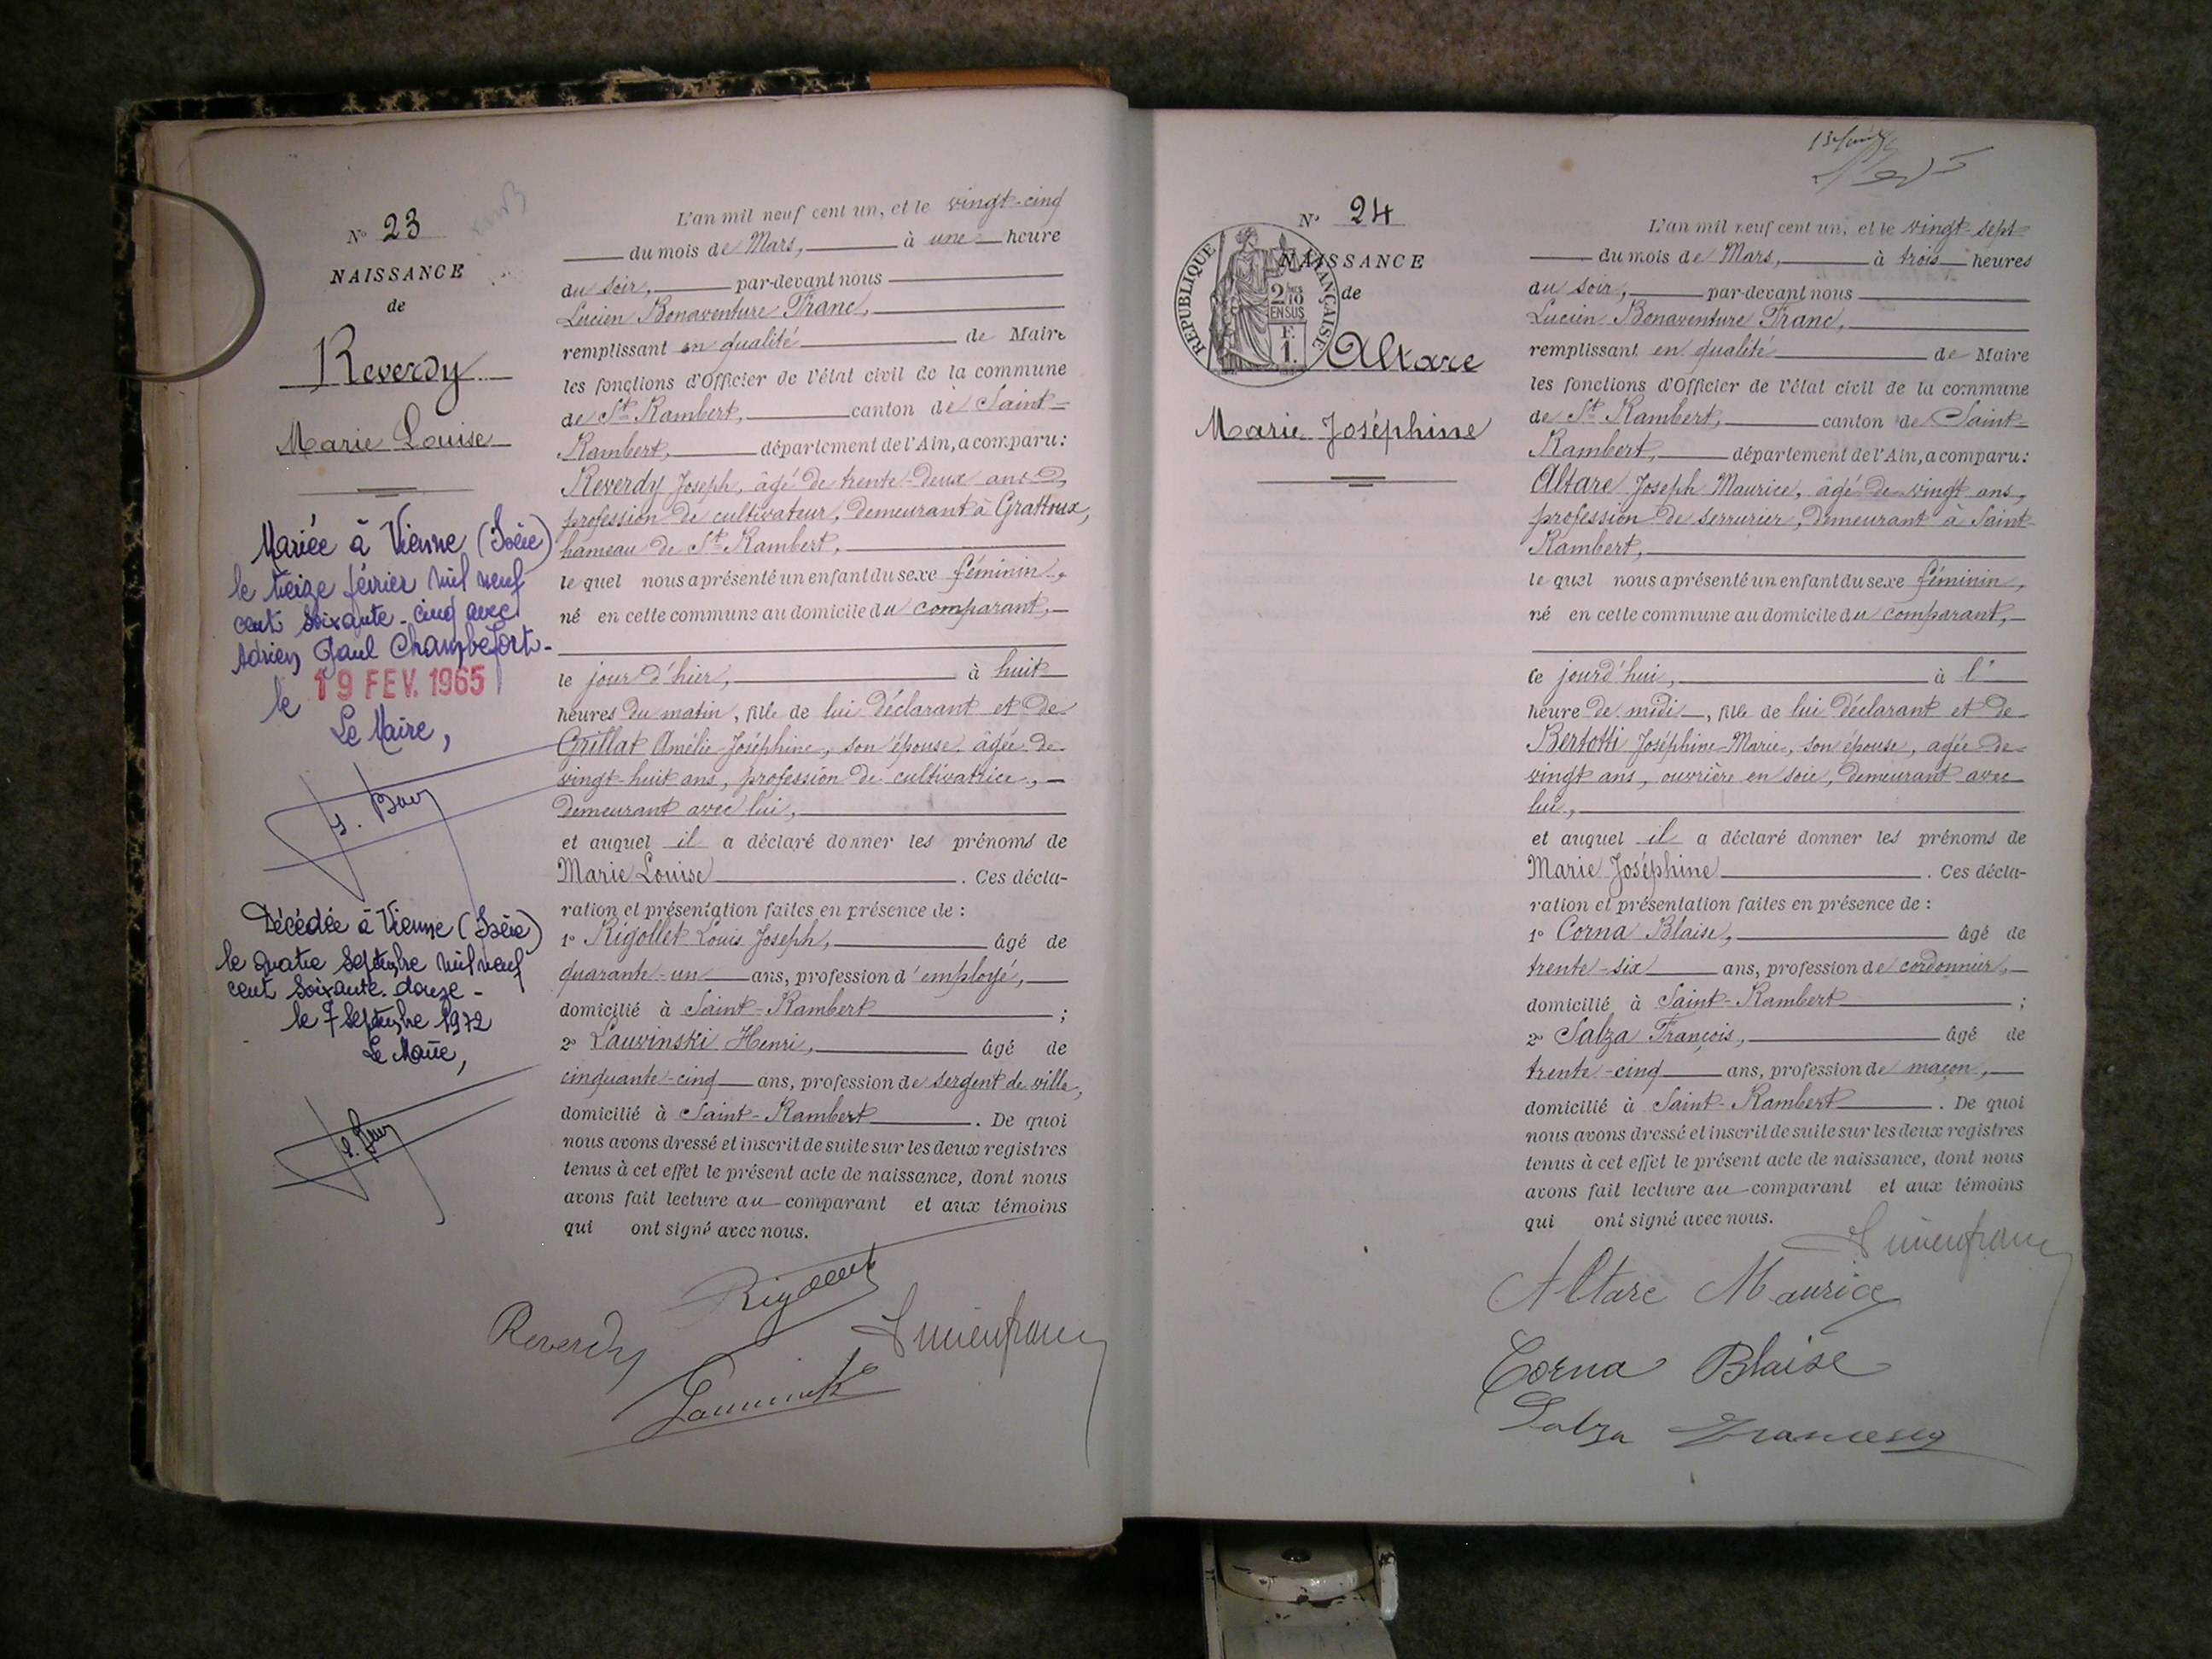 N° 23
NAISSANCE
de
Reverdy
Marie Louise
Mariée à Vienne (Isère)
le treize février mil neuf
cent soixante-cinq avec
Adrien Paul Chambefort-
le 19 FEV. 1965
Le Maire,
Décédée à Vienne (Isère)
le quatre septembre mil neuf
cent soixante-douze-
le 7 septembre 1972
Le Maire,
L'an mil neuf cent un, et le vingt-cinq
du mois de Mars, à une heure
du soir, par-devant nous
Lucien Bonaventure Franc,
remplissant en qualité de Maire
les fonctions d'Officier de l'état civil de la commune
de St Rambert, canton de Saint-
Rambert, département de l'Ain, a comparu:
Reverdy Joseph, âgé de trente-deux ans,
profession de cultivateur, demeurant à Grattoux,
hameau de St Rambert,
lequel nous a présenté un enfant du sexe féminin,
né en cette commune au domicile du comparant,
le jour d'hier, à huit
heures du matin, fille de lui déclarant et de
Grillat Amélie-Joséphine, son épouse, âgée de
vingt-huit ans, profession de cultivatrice,
demeurant avec lui,
et auquel il a déclaré donner les prénoms de
Marie Louise. Ces décla-
ration et présentation faites en présence de :
1° Rigollet Louis Joseph, âgé de
quarante-un ans, profession d'employé,
domicilié à Saint-Rambert ;
2° Lauvinski Henri, âgé de
cinquante-cinq ans, profession de sergent de ville,
domicilié à Saint-Rambert. De quoi
nous avons dressé et inscrit de suite sur les deux registres
tenus à cet effet le présent acte de naissance, dont nous
avons fait lecture au comparant et aux témoins
qui ont signé avec nous.
Reverdy
Lucienfranc
N° 24
NAISSANCE
de
RÉPUBLIQUE FRANÇAISE
2/10
EN SUS
F.
1.
Altare
Marie Joséphine
L'an mil neuf cent un, et le vingt-sept
du mois de Mars, à trois heures
du soir, par-devant nous
Lucien Bonaventure Franc,
remplissant en qualité de Maire
les fonctions d'Officier de l'état civil de la commune
de St Rambert, canton de Saint-
Rambert, département de l'Ain, a comparu:
Altare Joseph Maurice, âgé de vingt ans,
profession de serrurier, demeurant à Saint-
Rambert,
lequel nous a présenté un enfant du sexe féminin,
né en cette commune au domicile du comparant,
ce jourd'hui, à l'
heure de midi, fille de lui déclarant et de
Bertotti Joséphine-Marie, son épouse, agée de
vingt ans, ouvrière en soie, demeurant avec
lui,
et auquel il a déclaré donner les prénoms de
Marie Joséphine. Ces décla-
ration et présentation faites en présence de :
1° Corna Blaise, âgé de
trente-six ans, profession de cordonnier,
domicilié à Saint-Rambert ;
2° Salza François, âgé de
trente-cinq ans, profession de maçon,
domicilié à Saint-Rambert. De quoi
nous avons dressé et inscrit de suite sur les deux registres
tenus à cet effet le présent acte de naissance, dont nous
avons fait lecture au comparant et aux témoins
qui ont signé avec nous.
Lucienfranc
Altare Maurice
Corna Blaise
Salza Francesco